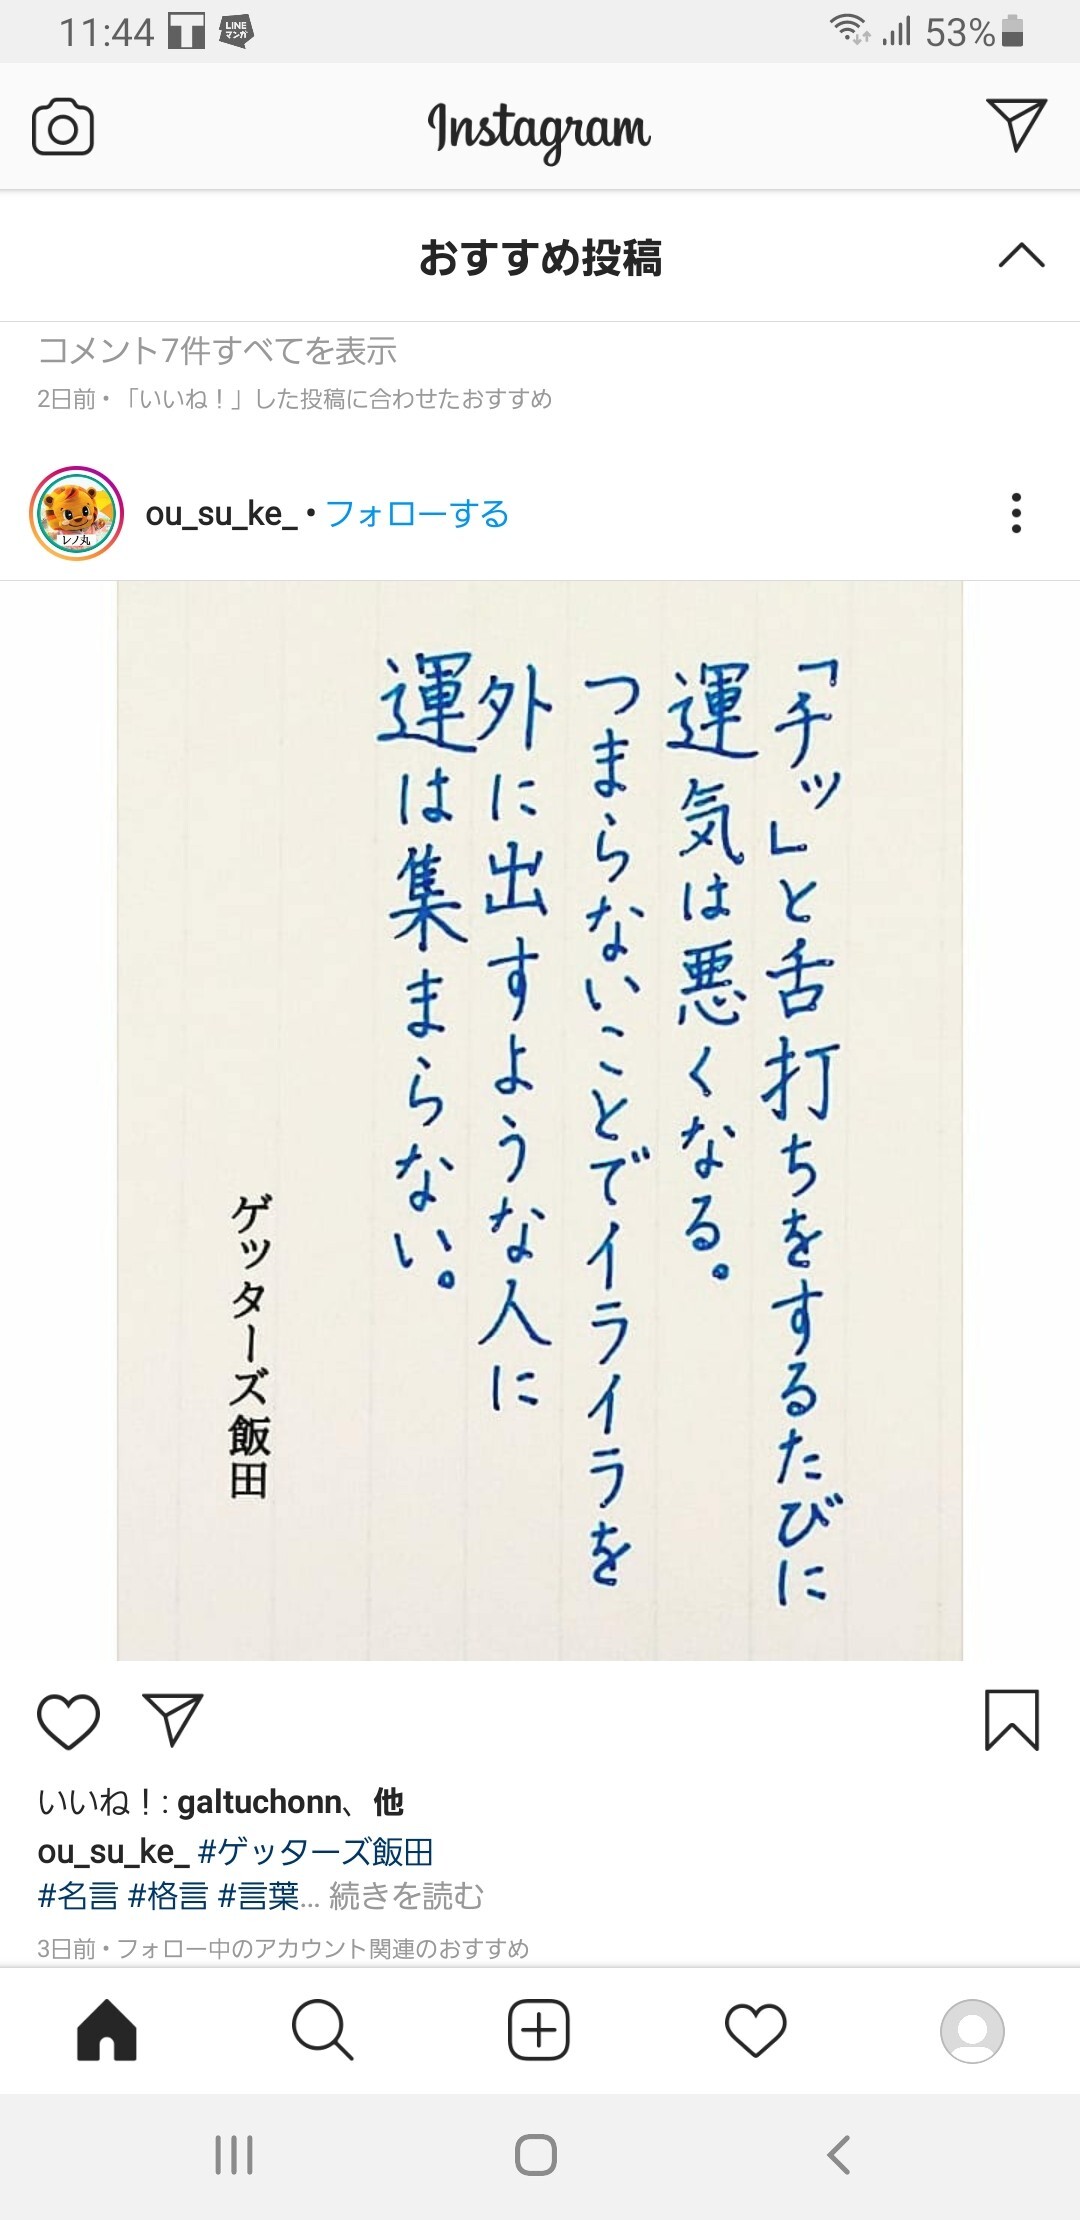 11:44
T
LINE
マンガ
53%
Instagram
おすすめ投稿
コメント7件すべてを表示
2日前•「いいね！」した投稿に合わせたおすすめ
レノ丸
ou_su_ke_ • フォローする
「チッ」と舌打ちをするたびに
運気は悪くなる。
つまらないことでイライラを
外に出すような人に
運は集まらない。
ゲッターズ飯田
いいね！: galtuchonn、他
ou_su_ke_ #ゲッターズ飯田
#名言 #格言 #言葉... 続きを読む
3日前•フォロー中のアカウント関連のおすすめ